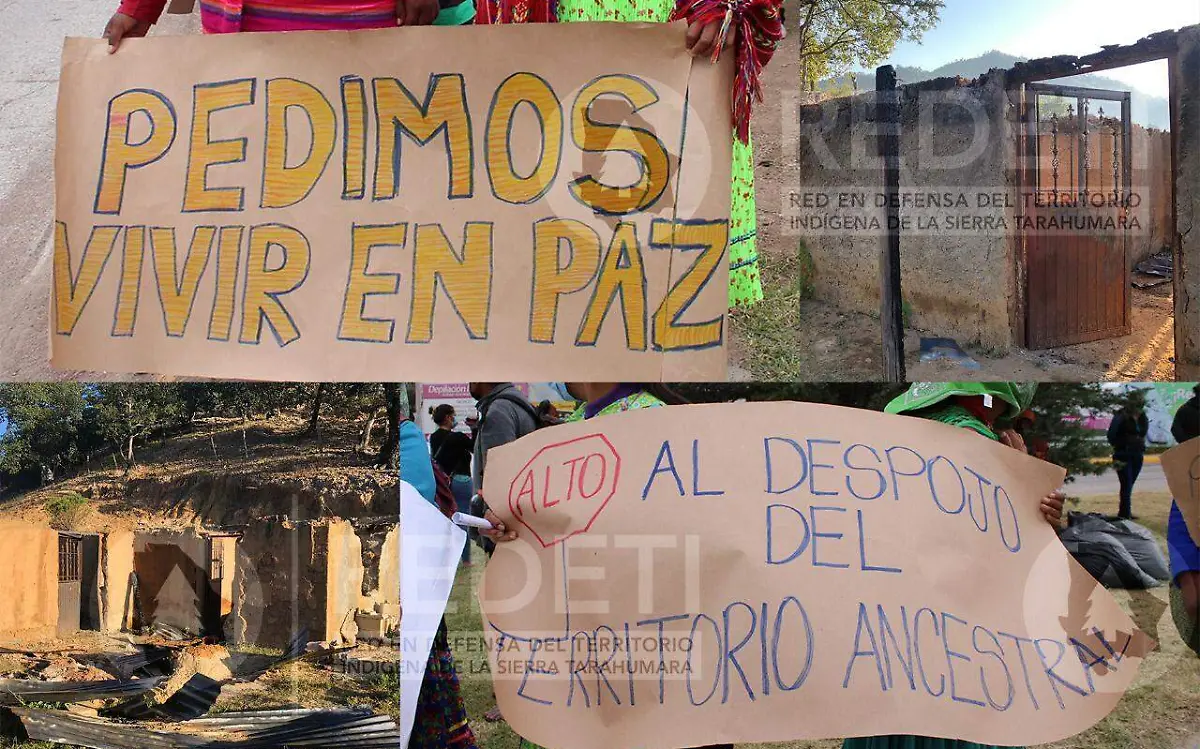 PEDIMOS
VIVIR EN PAZ
REDETI
RED EN DEFENSA DEL TERRITORIO
INDÍGENA DE LA SIERRA TARAHUMARA
Depilación
ALTO AL DESPOJO
DEL
TERRITORIO ANCESTRAL
REDETI
RED EN DEFENSA DEL TERRITORIO
INDÍGENA DE LA SIERRA TARAHUMARA